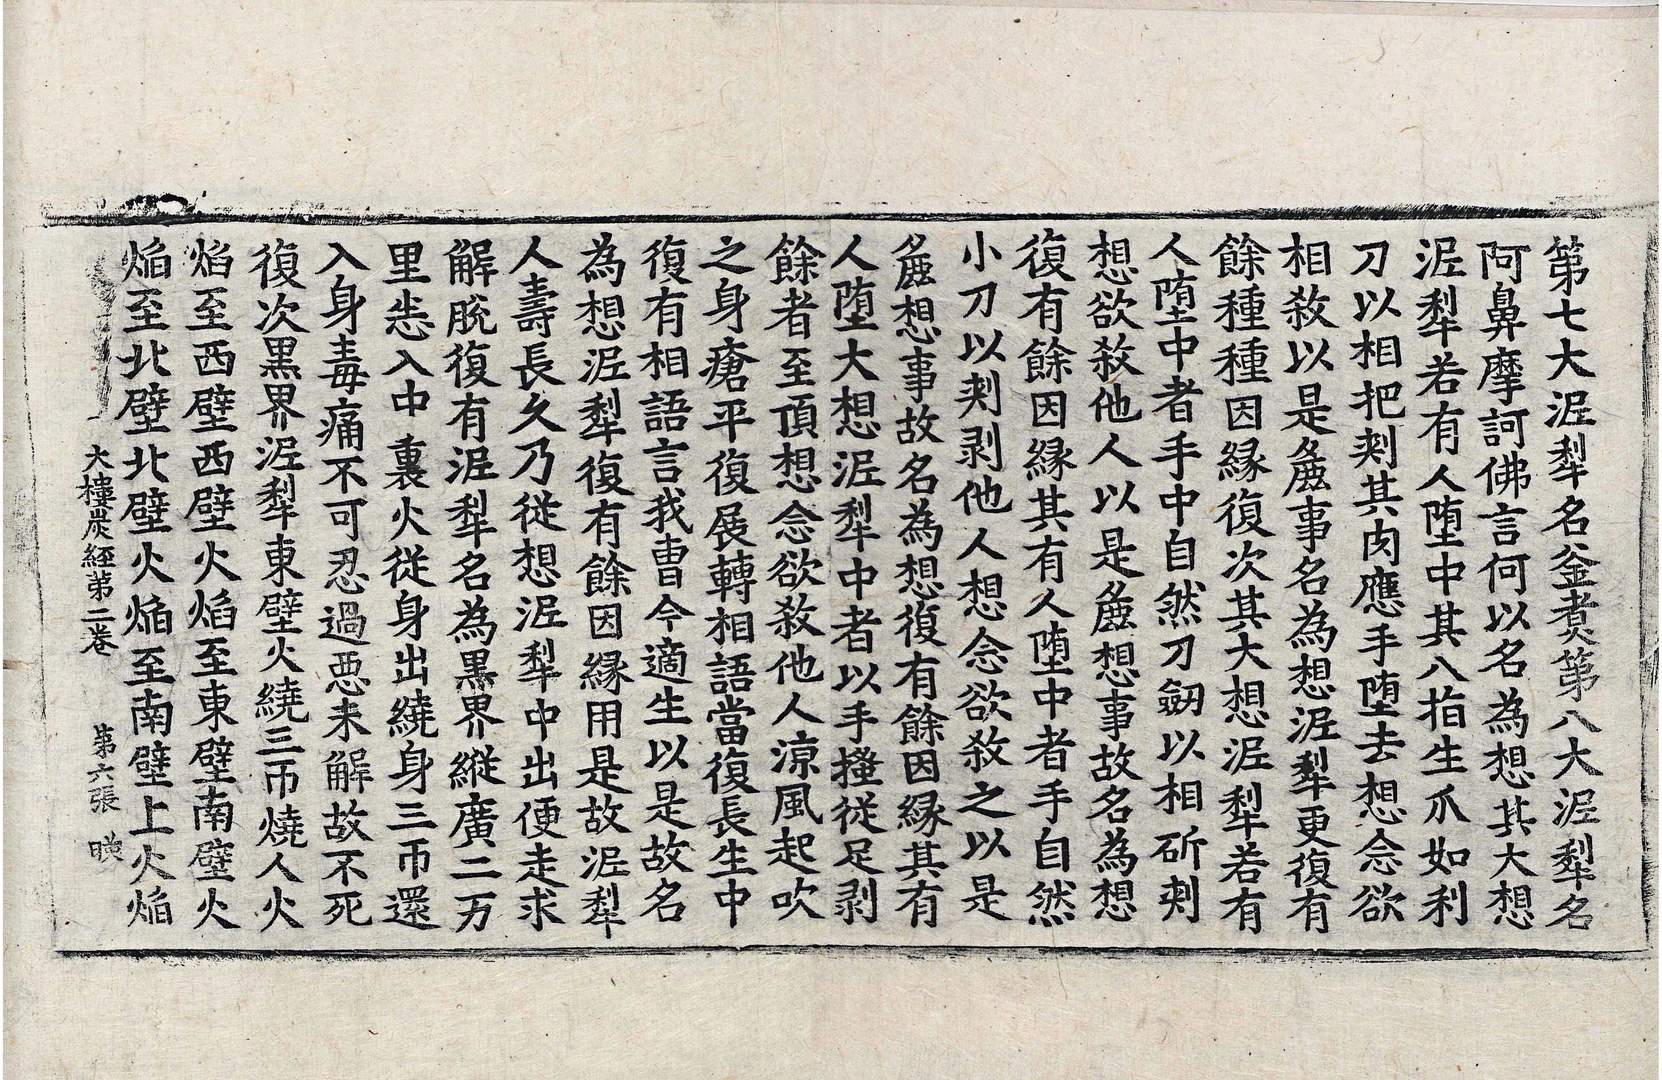 第七大泥犁名釜煮第八大泥犁名
阿鼻摩訶佛言何以名為想其大想
泥犁若有人堕中其人指生爪如利
刀以相把剥其肉應手堕去想念欲
相敘以是麁事名為想泥犁更復有
餘種種因縁復次其大想泥犁若有
人堕中者手中自然刀劒以相斫剥
想欲敘他人以是麁想事故名為想
復有餘因縁其有人堕中者手自然
小刀以剥剥他人想念欲敘之以是
麁想事故名為想復有餘因縁其有
人堕大想泥犁中者以手搔從足剥
餘者至頂想念欲敘他人涼風起吹
之身瘡平復展轉相語當復長生中
復有相語言我曹今適生以是故名
為想泥犁復有餘因縁用是故泥犁
人壽長久乃從想泥犁中出便走求
解脫復有泥犁名為黒界縱廣二万
里恙入中裏火從身出繞身三帀還
入身毒痛不可忍過惡未解故不死
復次黒界泥犁東壁火繞三帀燒人火
焰至西壁西壁火焰至東壁南壁火
焰至北壁北壁火焰至南壁上火焰
大樓炭經第二卷 第六張 暎